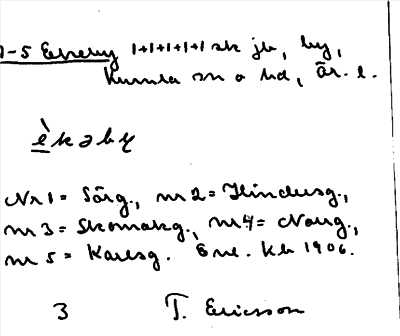 1-5 Ekeby 1+1+1+1+1 sk jb, by,
Kumla sn o hd, Är. l.
èkəby
Nr 1 = Sörg., nr 2 = Hindersg.,
nr 3 = Skomakg., nr 4 = Norrg.,
nr 5 = Karlsg. Enl. kb 1906.
3 T. Ericsson